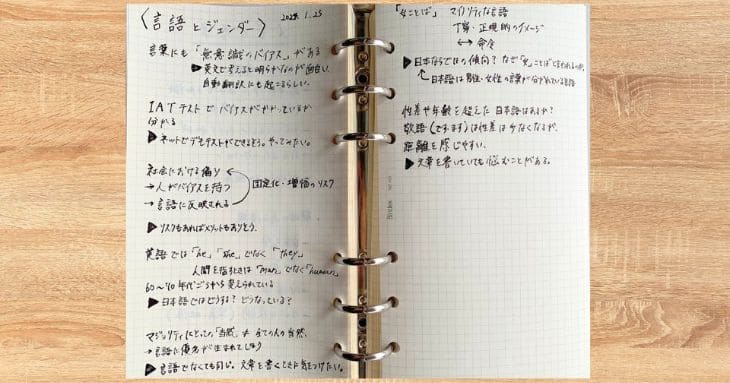 〈言語とジェンダー〉 2024. 1. 25
言葉にも「無意識のバイアス」がある
▶英文で考えると明らかなのが面白い。
自動翻訳にも起こるらしい。
IATテストでバイアスがかかっているか
分かる
▶ネットでデモテストができるそう。やってみたい。
社会における偏り
→人がバイアスを持つ
→言語に反映される
固定化・増幅のリスク
▶リスクもあればメリットもありそう。
英語では「he」「she」でなく「they」
人間を指すときは「man」でなく「human」
60〜70年代ごろから変えられている
▶日本語ではどうする？どうなっている？
マジョリティにとっての「当然」≠全ての人の当然、
→言語に優劣が生まれてしまう
▶言語でなくても同じ。文章を書くときに気をつけたい。
「女ことば」 マイノリティな言語
丁寧・正規的のイメージ
↔命令
▶日本ならではの傾向？なぜ「女」ことばと言われるのか。
日本語は男性・女性の言葉が分かれている言語
性差や年齢を超えた日本語はあるか？
敬語(です・ます)は性差は少なくなるが、
距離を感じやすい。
▶文章を書いていても悩むことがある。